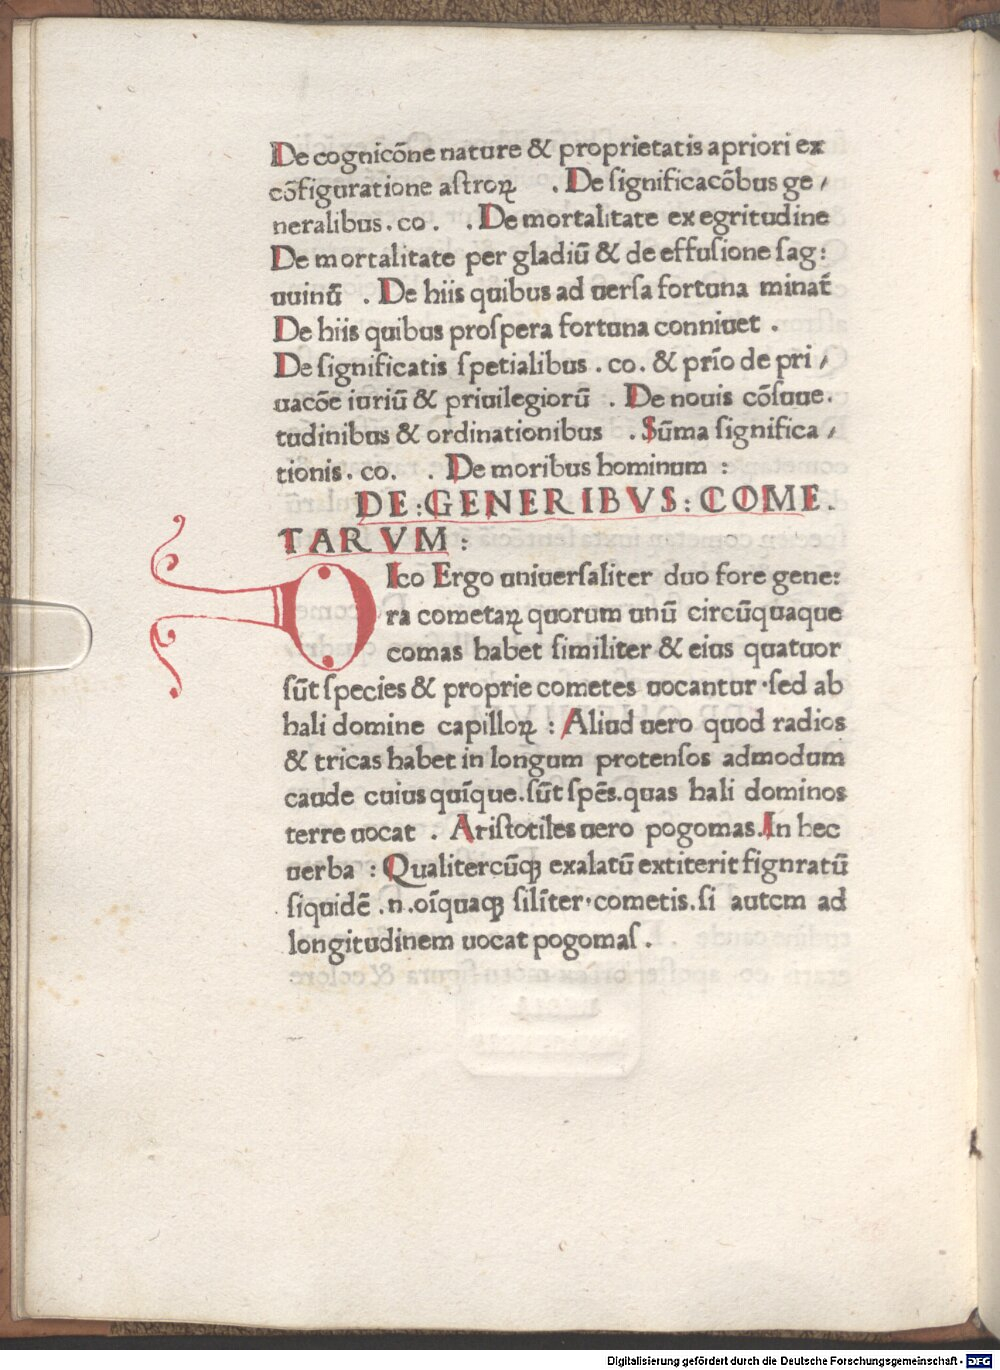 De cognicōne nature & proprietatis a priori ex
cōfiguratione aſtroꝝ . De ſignificacōbus ge /
neralibus . co . . De mortalitate ex egritudine
De mortalitate per gladiū & de effuſione ſag:
uuinū . De hiis quibus ad uerſa fortuna minat̄
De hiis quibus proſpera fortuna conniuet .
De ſignificatis ſpetialibus . co . & prīo de pri /
uacōe iuriū & priuilegiorū . De nouis cōſuue.
tudinibus & ordinationibus . Sūma ſignifica /
tionis . co . . De moribus hominum :
DE : GENERIBVS : COME .
TARVM :
DIco Ergo uniuerſaliter duo fore gene:
ra cometaꝝ quorum unū circūquaque
comas habet ſimiliter & eius quatuor
ſūt ſpecies & proprie cometes uocantur · ſed ab
hali domine capilloꝝ : Aliud uero quod radios
& tricas habet in longum protenſos admodum
caude cuius quīque . ſūt ſpēs . quas hali dominos
terre uocat . Ariſtotiles uero pogomas . In hec
uerba : Qualitercūqꝫ exalatū extiterit fignratū
ſiquidē . n . oīquaqꝫ ſilīter · cometis . ſi autem ad
longitudinem uocat pogomaſ .
Digitalisierung gefördert durch die Deutsche Forschungsgemeinschaft - DFG